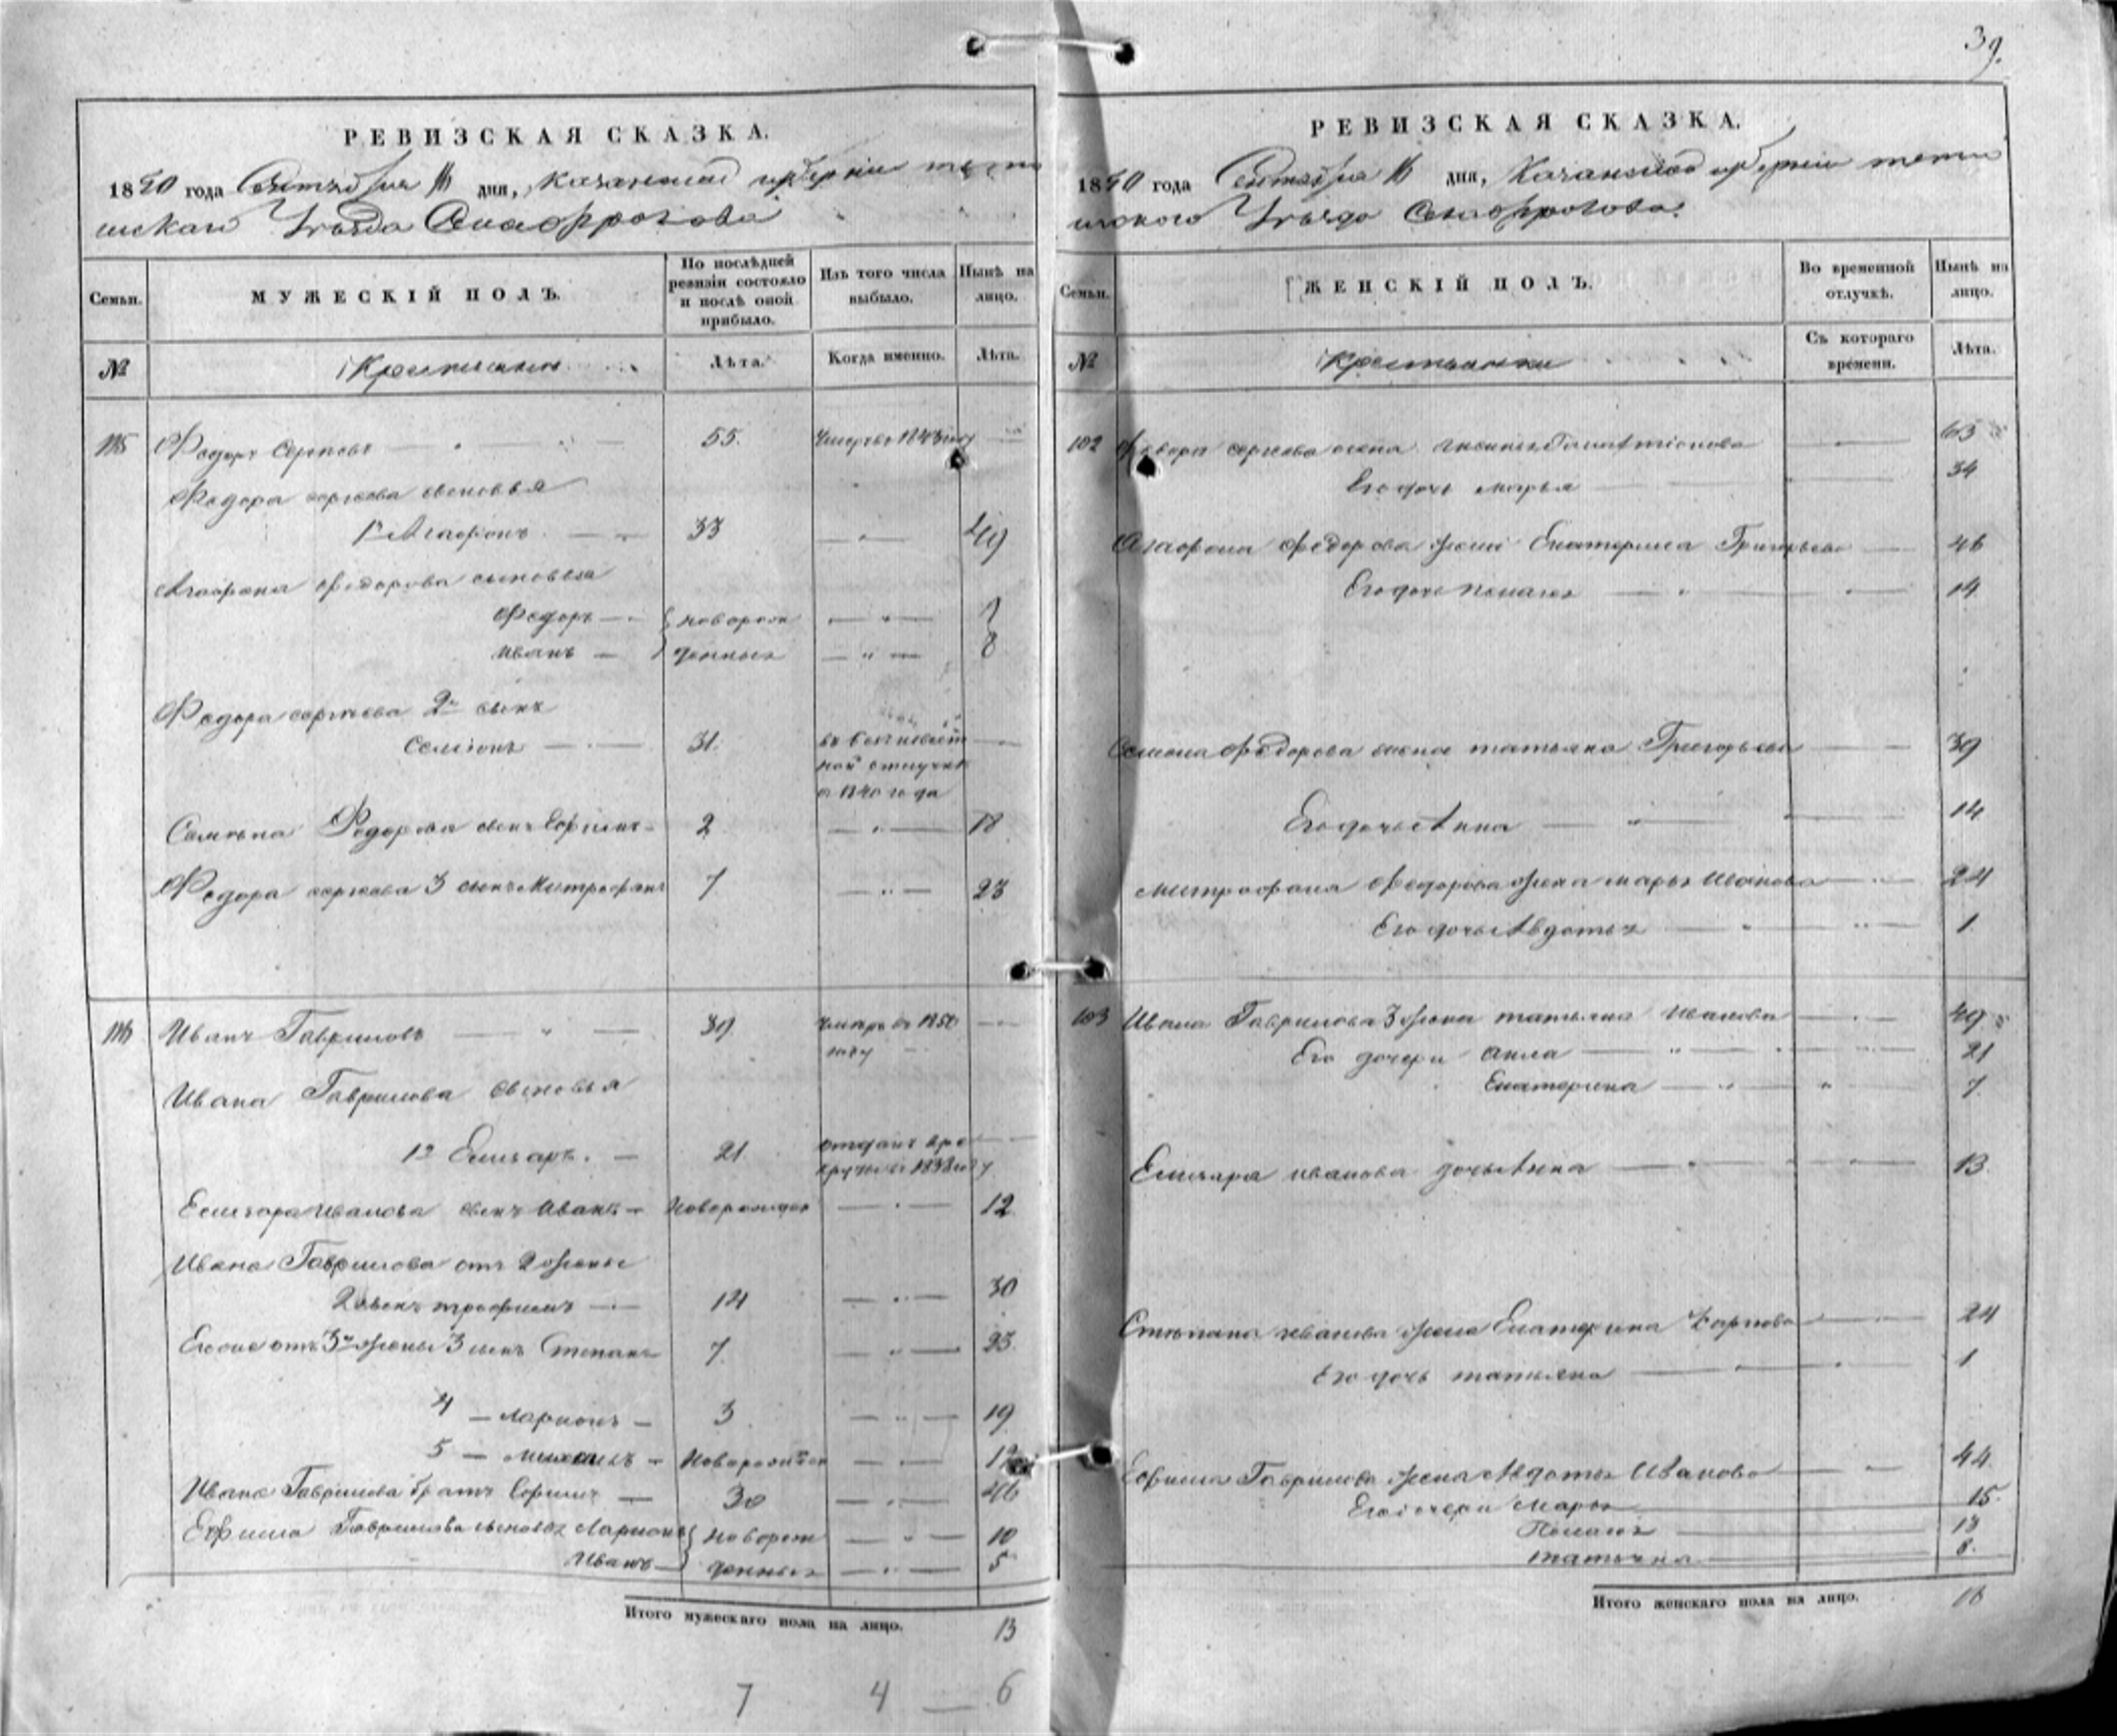 39.
РЕВИЗСКАЯ СКАЗКА.
1850 года Сентября дня, Казанской губернии тетю
шскаго Уѣзда
Семьи.
МУЖЕСКІЙ ПОЛЪ.
По послѣдней ревизіи состояло и послѣ оной прибыло.
Изъ того числа выбыло.
Нынѣ на лицо.
№
Крестьяне
Лѣта.
Когда именно.
Лѣта.
Федоръ Сергѣевъ 55.
Федора сергѣева сыновья
1й Агафонъ 33 49
Агафона федорова сыновья
Федоръ новорож
Иванъ денные 8
Федора сергѣева 2й сынъ
Семіонъ 31. въ безъизвѣст
ной отлучкѣ
с 1840 года
Семіона Федорова сынъ Ефримъ 2 18
Федора сергѣева 3 сынъ Митрофанъ 7 23
Иванъ Гавриловъ 39 умеръ въ 1850
году
Ивана Гаврилова сыновья
1й Елизаръ. 21 отданъ въ ре
круты въ 1838 году
Елизара Иванова сынъ Иванъ Новорожден 12
Ивана Гаврилова отъ 2 жены
2 сынъ трофимъ 14 30
Его же отъ 3й жены 3 сынъ Степанъ 7. 23.
4 Ларионъ 3 19
5 Михаилъ Новорожден
Ивана Гаврилова братъ Ефимъ 30 46
Ефима Гаврилова сыновья Ларионъ новорож 10
Иванъ денные 5
Итого мужескаго пола на лицо. 13
7 4 — 6
РЕВИЗСКАЯ СКАЗКА.
1850 года Сентября дня, Казанской губерніи тетю
шского Уѣзда
Семьи.
ЖЕНСКІЙ ПОЛЪ.
Во временной отлучкѣ.
Нынѣ на лицо.
№
Крестьянки
Съ котораго времени.
Лѣта.
102 Федора сергѣева жена 63
Его дочь марья 34
Агафона Федорова жена Екатерина Григорьева 46
Его дочь Пелагея 14
Семиона Федорова жена татьяна Григорьева 39
Его дочь Анна 14
Митрофана Федорова жена марья Иванова 24
Его дочь Авдотья 1
103 Ивана Гаврилова 3 жена татьяна Иванова 49
Его дочери Анна 21
Екатерина 7
Елизара иванова дочь Анна 13.
Степана иванова жена Екатерина Карпова 24
Его дочь татьяна 1
Ефима Гаврилова жена Авдотья Иванова 44.
Его дочери Марья 15.
Пелагея 13
татьяна 8.
Итого женскаго пола на лицо. 16